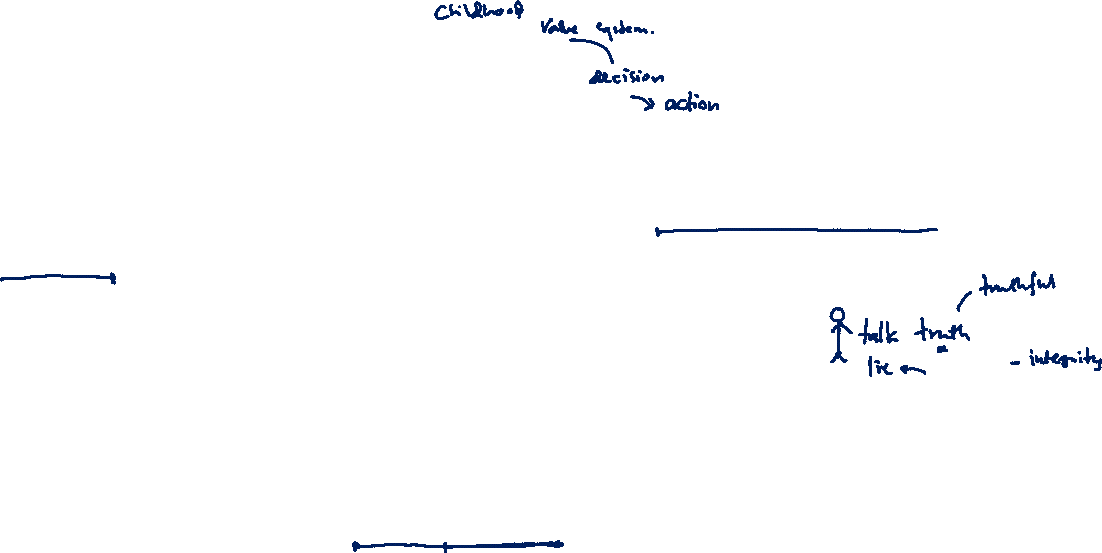 Childhood
Value system.
decision
action
truthful
talk truth
lie
- integrity